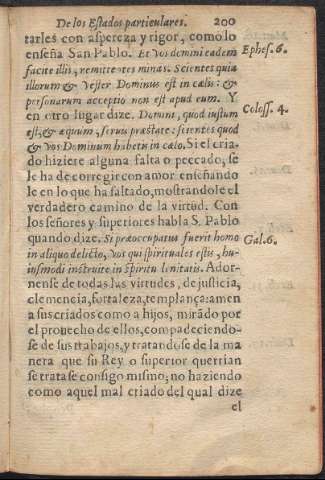 De los Estados particulares. 200
tarles con aspereza y rigor, como lo
enseña San Pablo. Et vos domini eadem
Ephes. 6.
facite illis, remittentes minas. Scientes quia
illorum & vester Dominus est in cælis: &
personarum acceptio non est apud eum. Y
en otro lugar dize. Domini, quod iustum
Coloss. 4.
est, & æquum, seruis præstate: scientes quod
& vos Dominum habetis in cælo. Si el cria-
do hiziere alguna falta o peccado, se
le ha de corregir con amor enseñando
le en lo que ha faltado, mostrandole el
verdadero camino de la virtud. Con
los señores y superiores habla S. Pablo
quando dize. Si præoccupatus fuerit homo
Gal. 6.
in aliquo delicto, vos qui spirituales estis, hu-
iusmodi instruite in spiritu lenitatis. Ador-
nense de todas las virtudes, de justicia,
clemencia, fortaleza, templança: amen
a sus criados como a hijos, mirãdo por
el prouecho de ellos, compadeciendo-
se de sus trabajos, y tratandose de la ma
nera que su Rey o superior querrian
se tratase consigo mismo; no haziendo
como aquel mal criado del qual dize
el